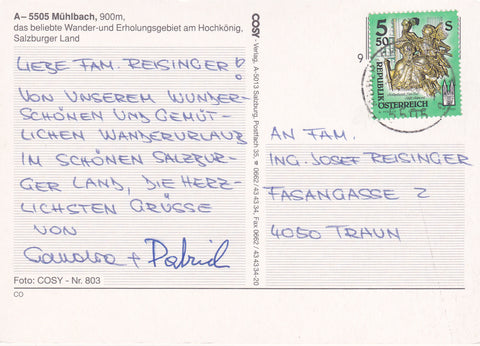 A– 5505 Mühlbach, 900m,
das beliebte Wander-und Erholungsgebiet am Hochkönig,
Salzburger Land
LIEBE FAM. REISINGER!
VON UNSEREM WUNDER-
SCHÖNEN UND GEMÜT-
LICHEN WANDERURLAUB
IM SCHÖNEN SALZBUR-
GER LAND, DIE HERZ-
LICHSTEN GRÜSSE
VON
Sandra + Patrick
Foto: COSY - Nr. 803
CO
COSY - Verlag, A-5013 Salzburg, Postfach 35, ☎ 0662 / 43 43 34, Fax 0662 / 43 43 34-20
5 50
S
REPUBLIK
ÖSTERREICH
5505
AN FAM.
ING. JOSEF REISINGER
FASANGASSE 2
4050 TRAUN